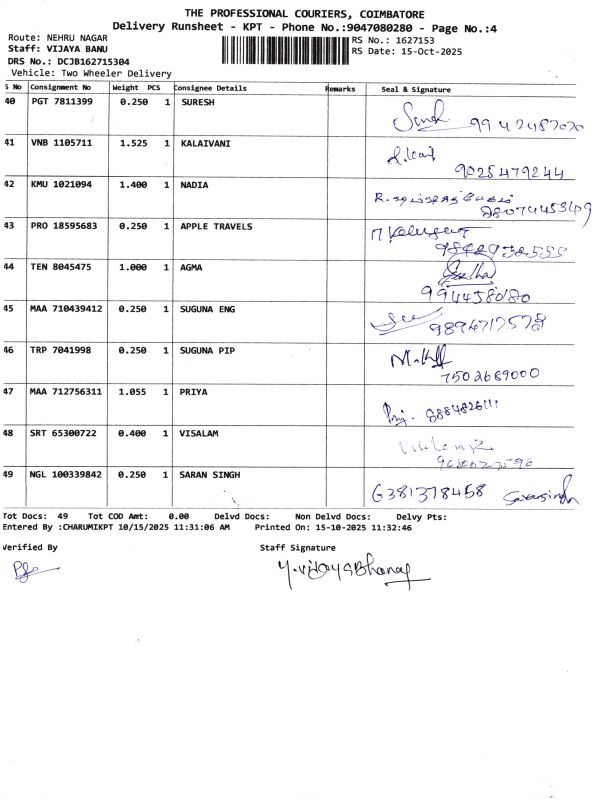 THE PROFESSIONAL COURIERS, COIMBATORE
Delivery Runsheet - KPT - Phone No.:9047080280 - Page No.:4
Route: NEHRU NAGAR
RS No.: 1627153
Staff: VIJAYA BANU
RS Date: 15-Oct-2025
DRS No.: DCJB162715304
Vehicle: Two Wheeler Delivery
S No Consignment No Weight PCS Consignee Details Remarks Seal & Signature
40 PGT 7811399 0.250 1 SURESH
41 VNB 1105711 1.525 1 KALAIVANI
9025479244
42 KMU 1021094 1.400 1 NADIA
43 PRO 18595683 0.250 1 APPLE TRAVELS
44 TEN 8045475 1.000 1 AGMA
45 MAA 710439412 0.250 1 SUGUNA ENG
9894717578
46 TRP 7041998 0.250 1 SUGUNA PIP
7502669000
47 MAA 712756311 1.055 1 PRIYA
48 SRT 65300722 0.400 1 VISALAM
49 NGL 100339842 0.250 1 SARAN SINGH
6381378458 Saransingh
Tot Docs: 49 Tot COD Amt: 0.00 Delvd Docs: Non Delvd Docs: Delvy Pts:
Entered By :CHARUMIKPT 10/15/2025 11:31:06 AM Printed On: 15-10-2025 11:32:46
Verified By Staff Signature